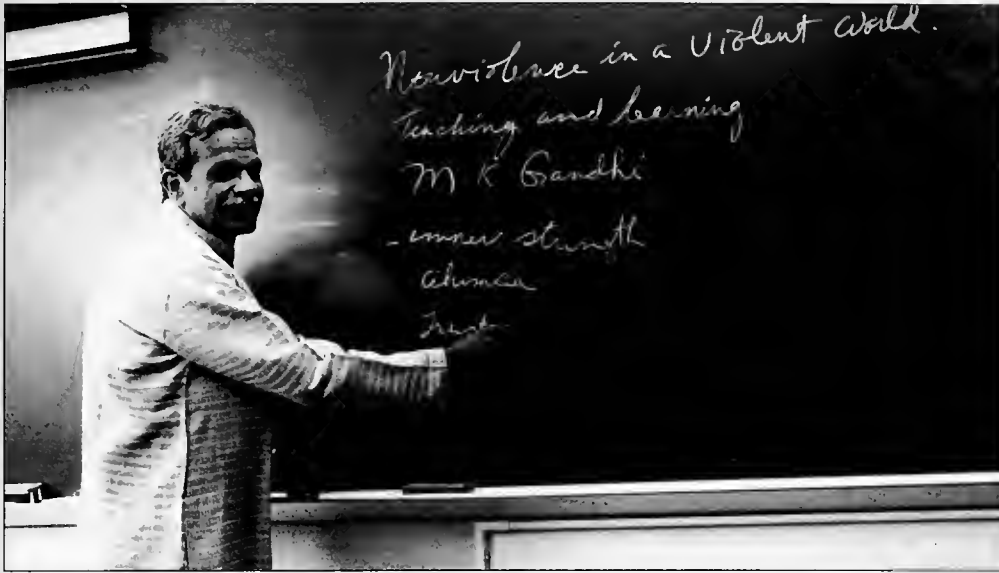 Nonviolence in a Violent World.
Teaching and learning
M K Gandhi
- inner strength
ahimsa